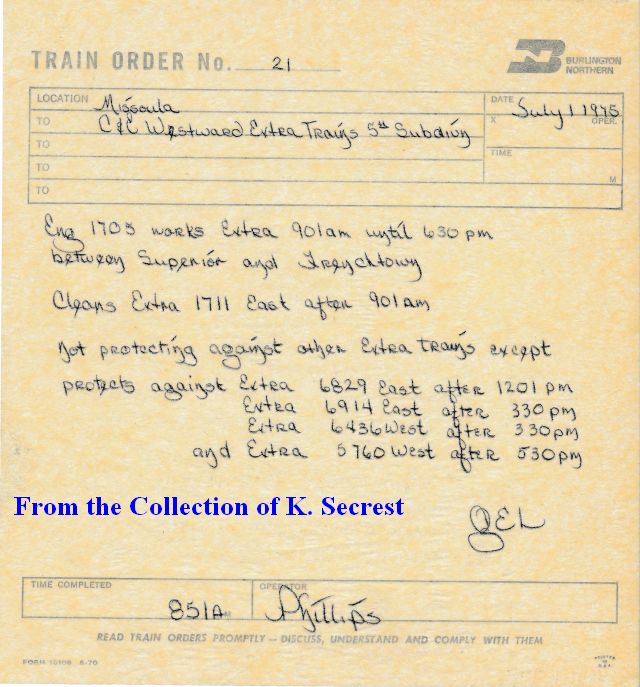 TRAIN ORDER No. 21
BURLINGTON NORTHERN
LOCATION Missoula
DATE July 1 1975
TO C&E Westward Extra Trains 5th Subdivn
X OPER.
TO
TIME M
TO
TO
Eng 1703 works Extra 901am until 630pm
between Superior and Frenchtown
Clears Extra 1711 East after 901am
Not protecting against other Extra trains except
protects against Extra 6829 East after 1201pm
Extra 6914 East after 330pm
Extra 6436 West after 330pm
and Extra 5760 West after 530pm
From the Collection of K. Secrest
TIME COMPLETED 851A M
OPERATOR Phillips
READ TRAIN ORDERS PROMPTLY — DISCUSS, UNDERSTAND AND COMPLY WITH THEM
FORM 6-70